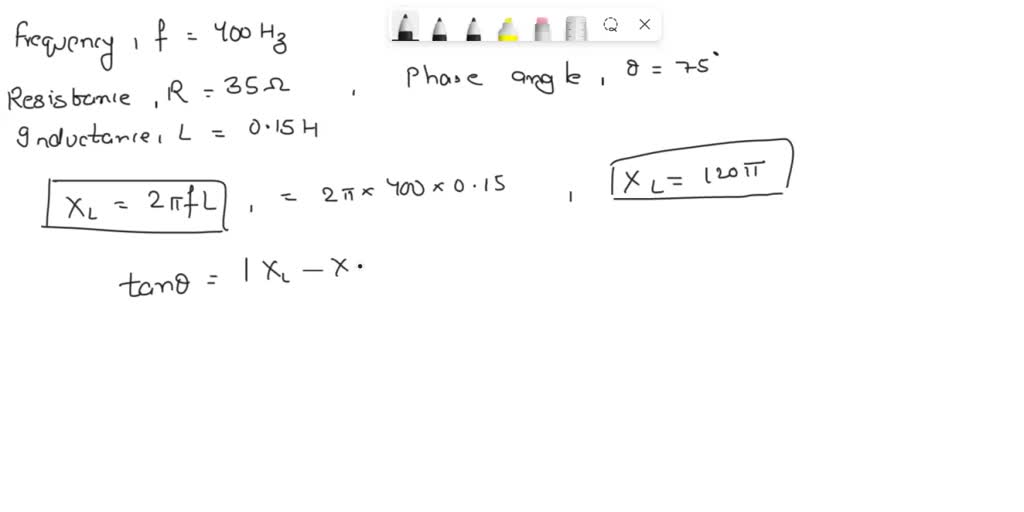 Frequency, f = 400 Hz
Resistance, R = 35Ω , Phase angle, θ = 75°
Inductance, L = 0.15H
XL = 2πfL , = 2π × 400 × 0.15 , XL = 120π
tanθ = | XL − X